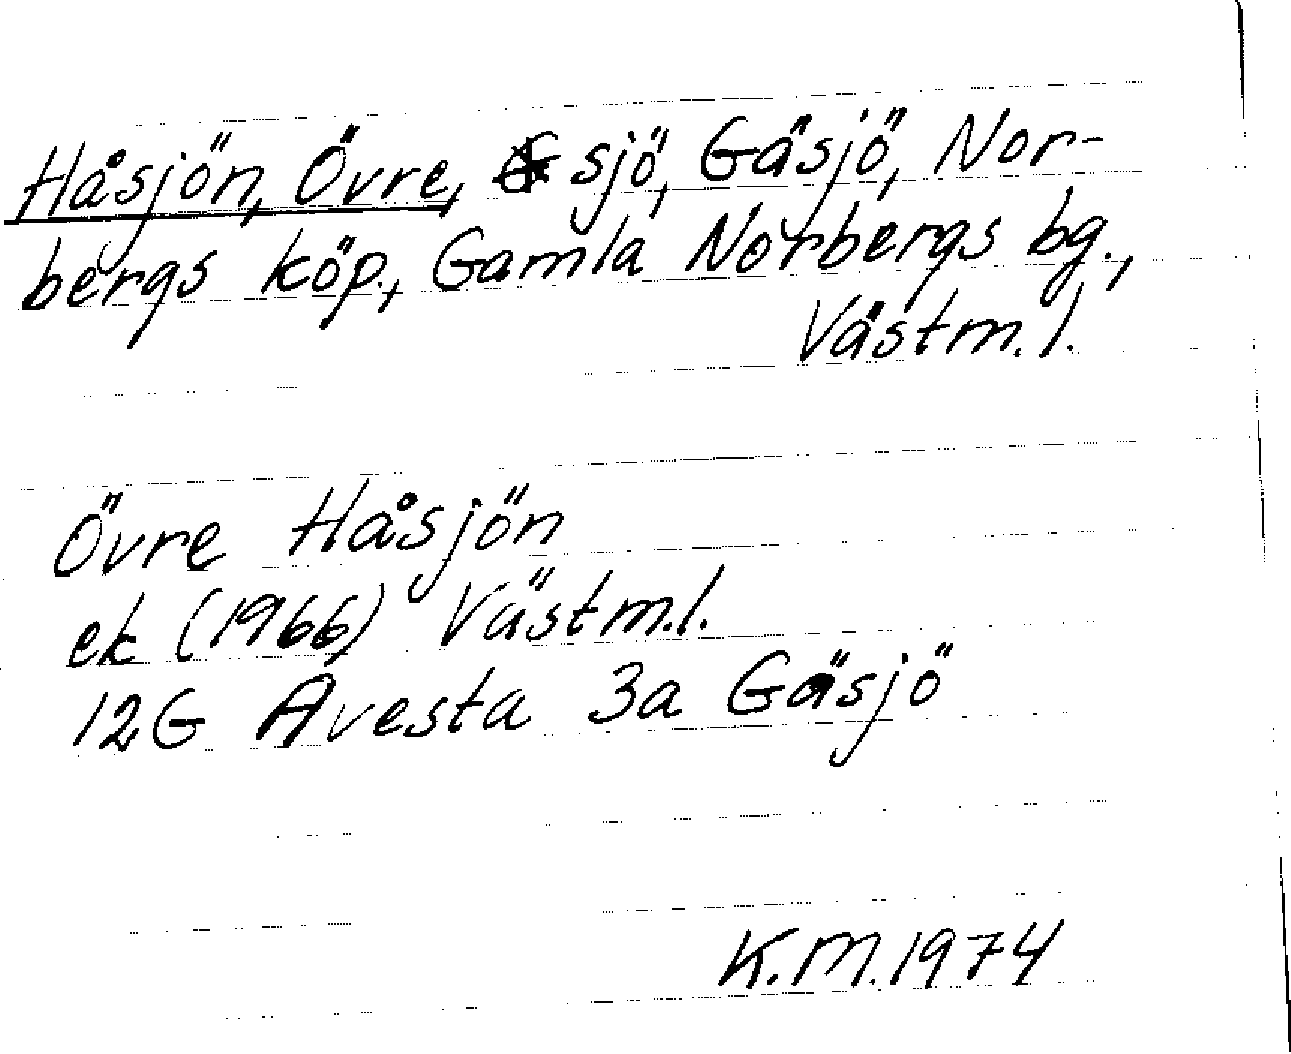 Håsjön, Övre, sjö, Gäsjö, Nor-
bergs köp., Gamla Norbergs bg.,
Västm.l.
Övre Håsjön
ek (1966) Västm.l.
12G Avesta 3a Gäsjö
K.M.1974